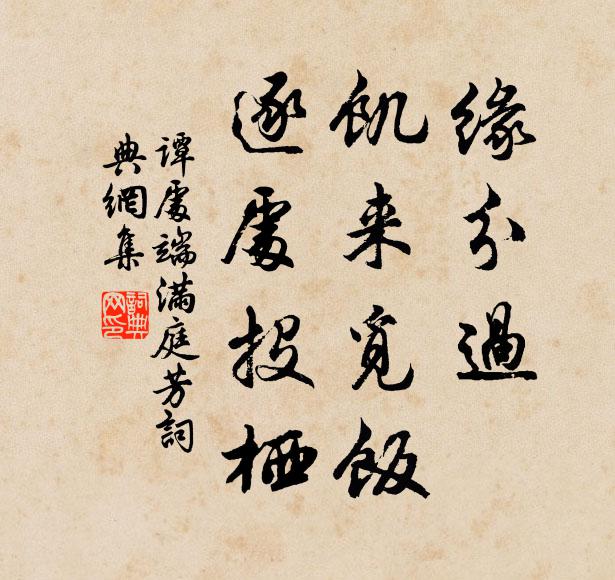 緣分過
飢来覓飯
逐處投栖
譚處端滿庭芳詞
典網集
詞典网印